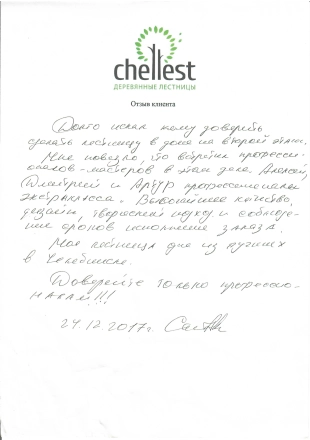 chellest
ДЕРЕВЯННЫЕ ЛЕСТНИЦЫ
Отзыв клиента
Долго искал кому доверить
сделать лестницу в доме на второй этаж.
Мне повезло, что встретил професси-
оналов-мастеров в этом деле. Алексей,
Дмитрий и Артур профессионалы
экстракласса. Высочайшее качество,
дизайн, творческий подход и соблюде-
ние сроков исполнения заказа.
Моя лестница одна из лучших
в Челябинске.
Доверяйте только профессио-
налам!!!
24.12.2017г.